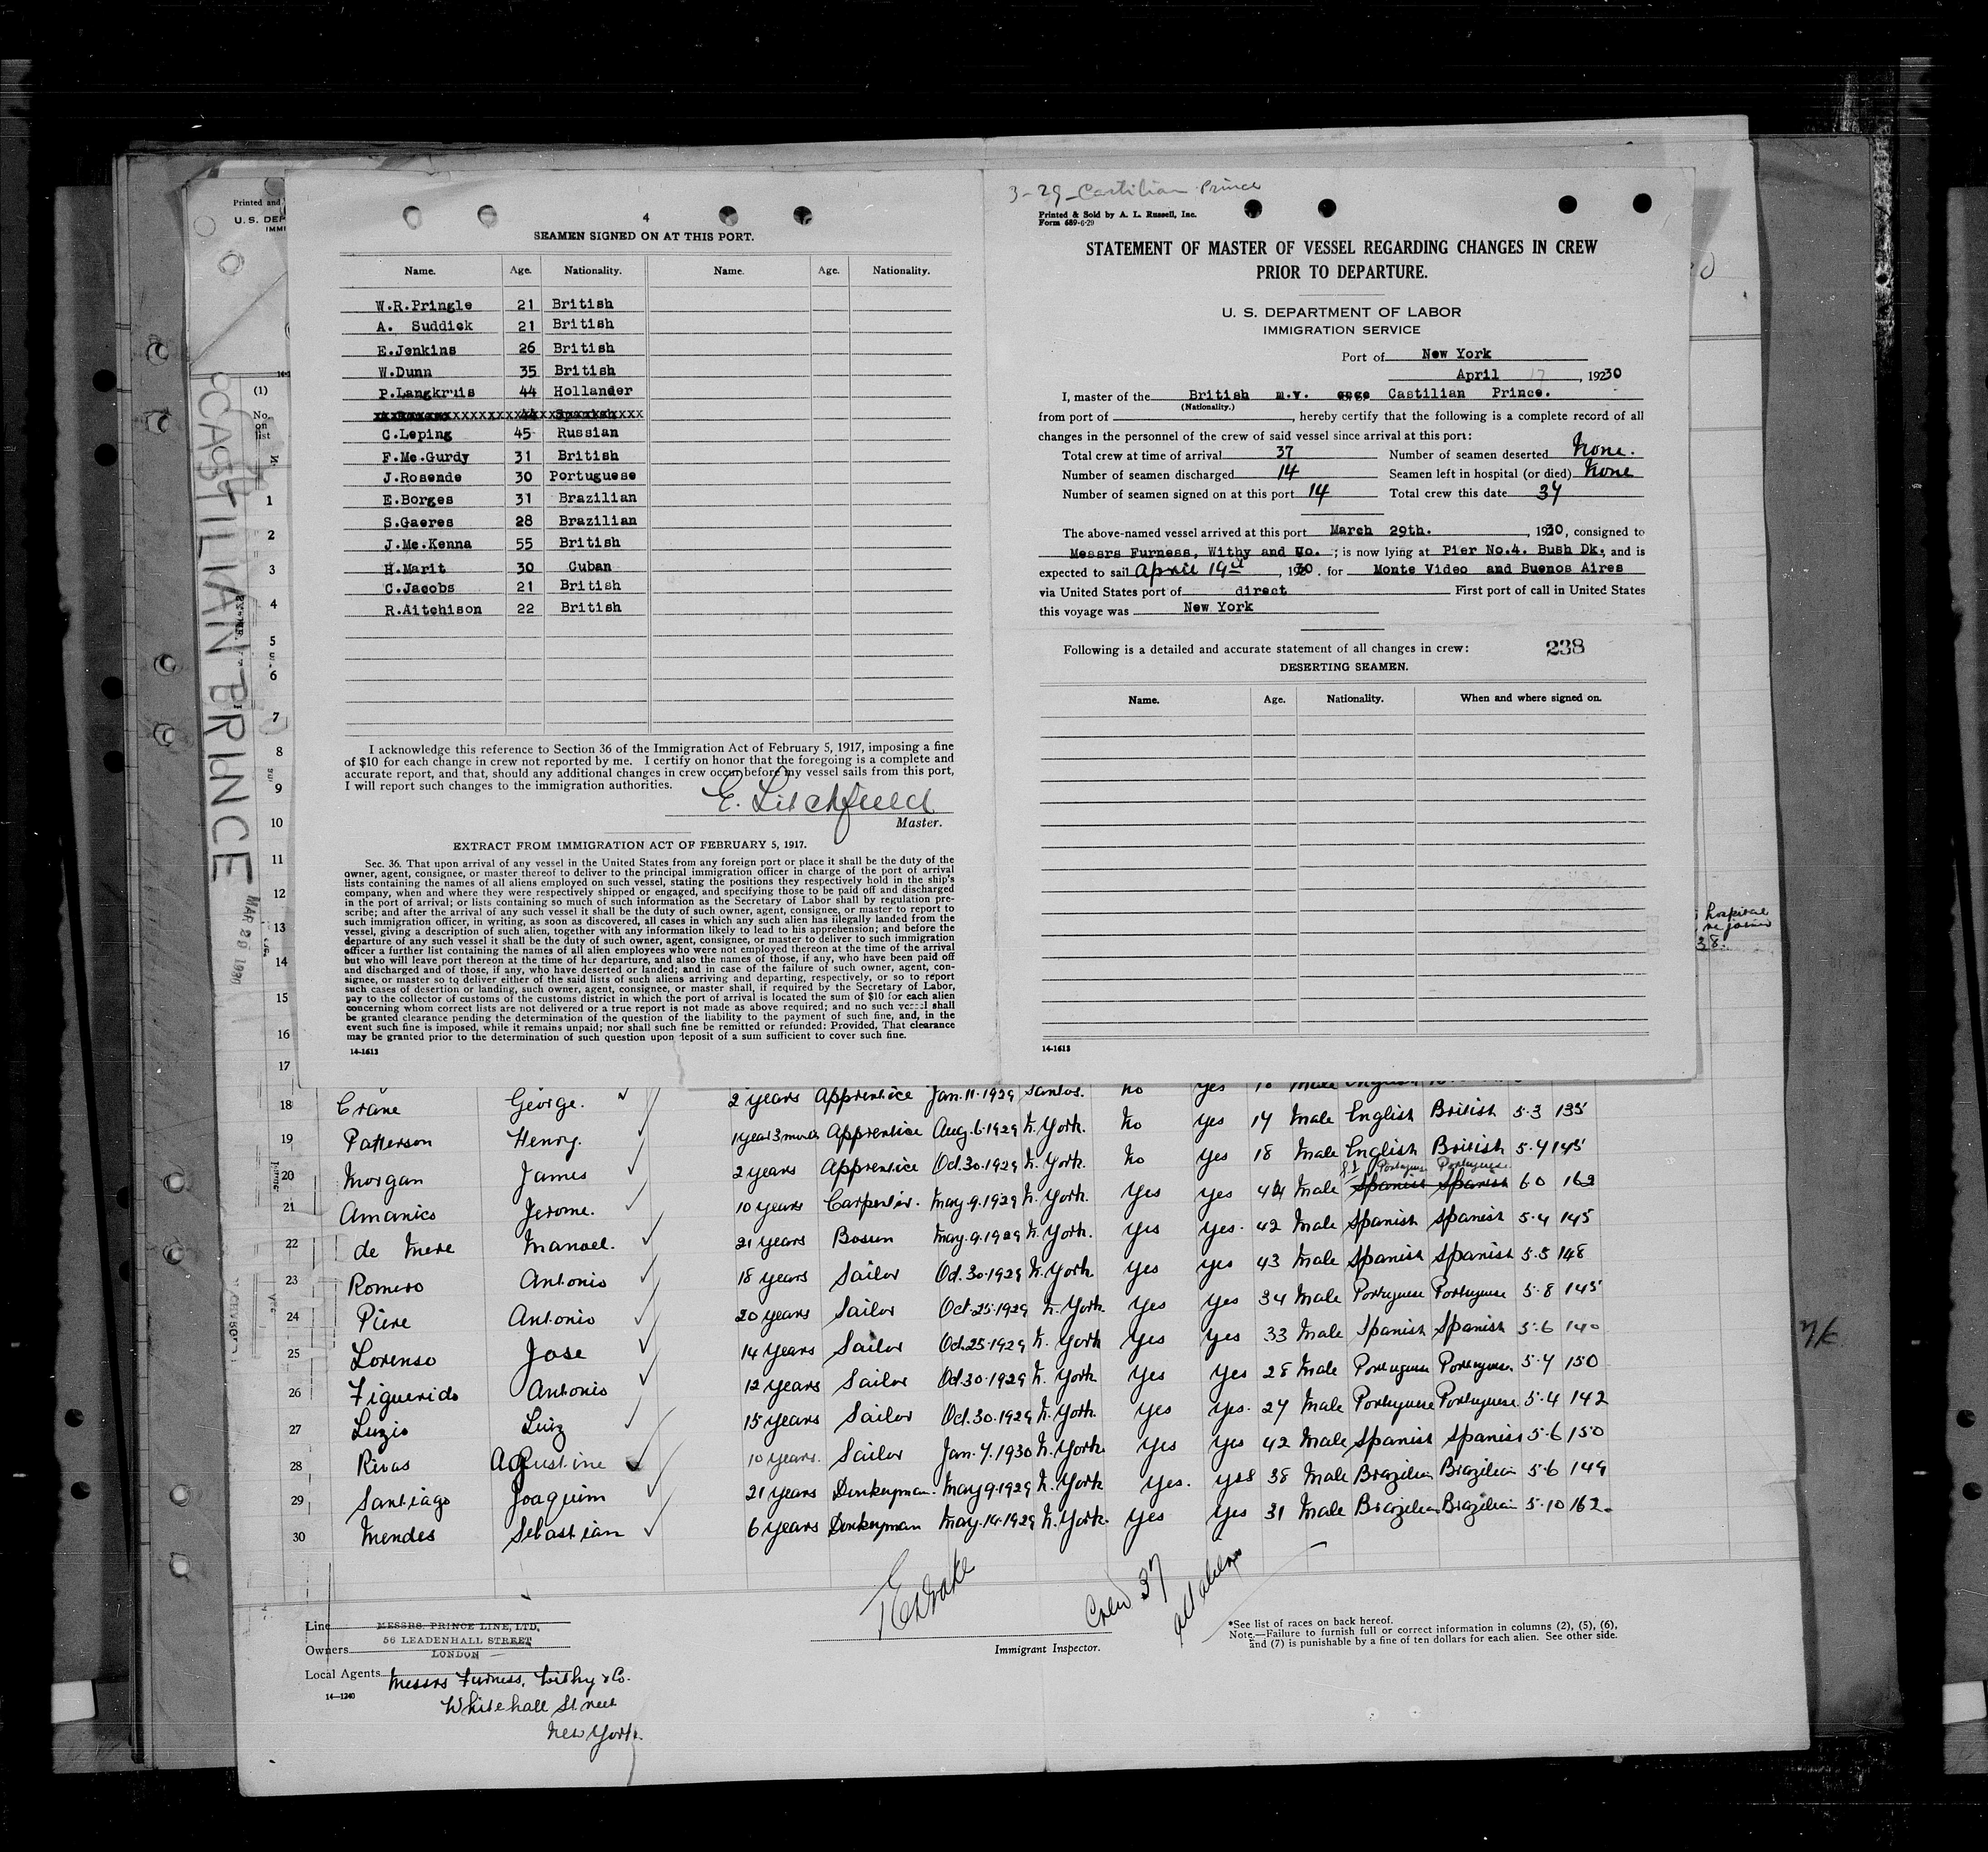 4
SEAMEN SIGNED ON AT THIS PORT.
Name. Age. Nationality. Name. Age. Nationality.
W.R.Pringle 21 British
A. Suddick 21 British
E.Jenkins 26 British
W.Dunn 35 British
P.Langkruis 44 Hollander
C.Leping 45 Russian
F.Mc.Gurdy 31 British
J.Rosende 30 Portuguese
E.Borges 31 Brazilian
S.Gaeres 28 Brazilian
J.Mc.Kenna 55 British
H.Marit 30 Cuban
C.Jacobs 21 British
R.Aitchison 22 British
I acknowledge this reference to Section 36 of the Immigration Act of February 5, 1917, imposing a fine
of $10 for each change in crew not reported by me. I certify on honor that the foregoing is a complete and
accurate report, and that, should any additional changes in crew occur before my vessel sails from this port,
I will report such changes to the immigration authorities.
E. Litchfield
Master.
EXTRACT FROM IMMIGRATION ACT OF FEBRUARY 5, 1917.
Sec. 36. That upon arrival of any vessel in the United States from any foreign port or place it shall be the duty of the
owner, agent, consignee, or master thereof to deliver to the principal immigration officer in charge of the port of arrival
lists containing the names of all aliens employed on such vessel, stating the positions they respectively hold in the ship's
company, when and where they were respectively shipped or engaged, and specifying those to be paid off and discharged
in the port of arrival; or lists containing so much of such information as the Secretary of Labor shall by regulation pre-
scribe; and after the arrival of any such vessel it shall be the duty of such owner, agent, consignee, or master to report to
such immigration officer, in writing, as soon as discovered, all cases in which any such alien has illegally landed from the
vessel, giving a description of such alien, together with any information likely to lead to his apprehension; and before the
departure of any such vessel it shall be the duty of such owner, agent, consignee, or master to deliver to such immigration
officer a further list containing the names of all alien employees who were not employed thereon at the time of the arrival
but who will leave port thereon at the time of her departure, and also the names of those, if any, who have been paid off
and discharged and of those, if any, who have deserted or landed; and in case of the failure of such owner, agent, con-
signee, or master so to deliver either of the said lists of such aliens arriving and departing, respectively, or so to report
such cases of desertion or landing, such owner, agent, consignee, or master shall, if required by the Secretary of Labor,
pay to the collector of customs of the customs district in which the port of arrival is located the sum of $10 for each alien
concerning whom correct lists are not delivered or a true report is not made as above required; and no such vessel shall
be granted clearance pending the determination of the question of the liability to the payment of such fine, and, in the
event such fine is imposed, while it remains unpaid; nor shall such fine be remitted or refunded: Provided, That clearance
may be granted prior to the determination of such question upon deposit of a sum sufficient to cover such fine.
14-1613
3-29-Castilian Prince
Printed & Sold by A. L. Russell, Inc.
Form 689-6-29
STATEMENT OF MASTER OF VESSEL REGARDING CHANGES IN CREW
PRIOR TO DEPARTURE.
U. S. DEPARTMENT OF LABOR
IMMIGRATION SERVICE
Port of New York
April 17, 1930
I, master of the British m.v. Castilian Prince.
(Nationality.)
from port of , hereby certify that the following is a complete record of all
changes in the personnel of the crew of said vessel since arrival at this port:
Total crew at time of arrival 37 Number of seamen deserted None.
Number of seamen discharged 14 Seamen left in hospital (or died) None
Number of seamen signed on at this port 14 Total crew this date 37
The above-named vessel arrived at this port March 29th. , 1930, consigned to
Messrs Furness, Withy and Co. ; is now lying at Pier No.4. Bush Dk. , and is
expected to sail April 19th , 1930 . for Monte Video and Buenos Aires
via United States port of direct First port of call in United States
this voyage was New York
Following is a detailed and accurate statement of all changes in crew: 238
DESERTING SEAMEN.
Name. Age. Nationality. When and where signed on.
14-1613
Printed and
U. S. DEP
IMMI
(1)
No.
on
list
CASTILIAN PRINCE
MAR 29 1930
1
2
3
4
5
6
7
8
9
10
11
12
13
14
15
16
17
hospital
38.
18 Crane George. 2 years Apprentice Jan.11.1929 Santos. No Yes
19 Patterson Henry. 1 year 3 months Apprentice Aug.6.1929 N.York. No Yes 17 Male English British 5.3 135
20 Morgan James 2 years Apprentice Oct.30.1929 N.York. No Yes 18 Male English British 5.7 145
21 Amanico Jerome. 10 years Carpenter. May.9.1929 N.York. Yes Yes 44 Male Spanish Spanish Portuguese Portuguese 6 0 162
22 de Mere Manoel. 21 years Bosun May.9.1929 N.York. Yes Yes. 42 Male Spanish Spanish 5.4 145
23 Romero Antonio 18 years Sailor Oct.30.1929 N.York. Yes Yes 43 Male Spanish Spanish 5.5 148
24 Piere Antonio 20 years Sailor Oct.25.1929 N.York Yes Yes 34 Male Portuguese Portuguese 5.8 145
25 Lorenso Jose 14 years Sailor Oct.25.1929 N. York Yes Yes 33 Male Spanish Spanish 5.6 140
26 Figuerido Antonio 12 years Sailor Oct.30.1929 N. York Yes Yes 28 Male Portuguese Portuguese 5.7 150
27 Luzio Luiz 15 years Sailor Oct.30.1929 N.York. Yes Yes. 27 Male Portuguese Portuguese 5.4 142
28 Rivas Agustine 10 years. Sailor Jan.7.1930 N.York. Yes Yes 42 Male Spanish Spanish 5.6 150
29 Santiago Joaquim 21 years Donkeyman. May 9.1929 N.York Yes. Yes 38 Male Brazilian Brazilian 5.6 149
30 Mendes Sebastian 6 years Donkeyman May.14.1929 N.York. Yes Yes 31 Male Brazilian Brazilian 5.10 162.
Line MESSRS. PRINCE LINE, LTD.
56 LEADENHALL STREET
Owners LONDON
Local Agents Messrs Furness, Withy & Co.
14—1240
Whitehall Street
New York.
Immigrant Inspector.
Crew 37
all aliens
*See list of races on back hereof.
Note.—Failure to furnish full or correct information in columns (2), (5), (6),
and (7) is punishable by a fine of ten dollars for each alien. See other side.